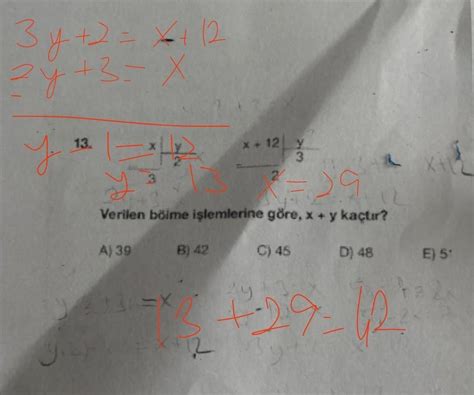 3y+2=x+12
2y+3=x
y-1=12
y=13 x=29
13. x | y x + 12 | y
2 3
3 2
Verilen bölme işlemlerine göre, x + y kaçtır?
A) 39 B) 42 C) 45 D) 48 E) 51
=x
13+29=42